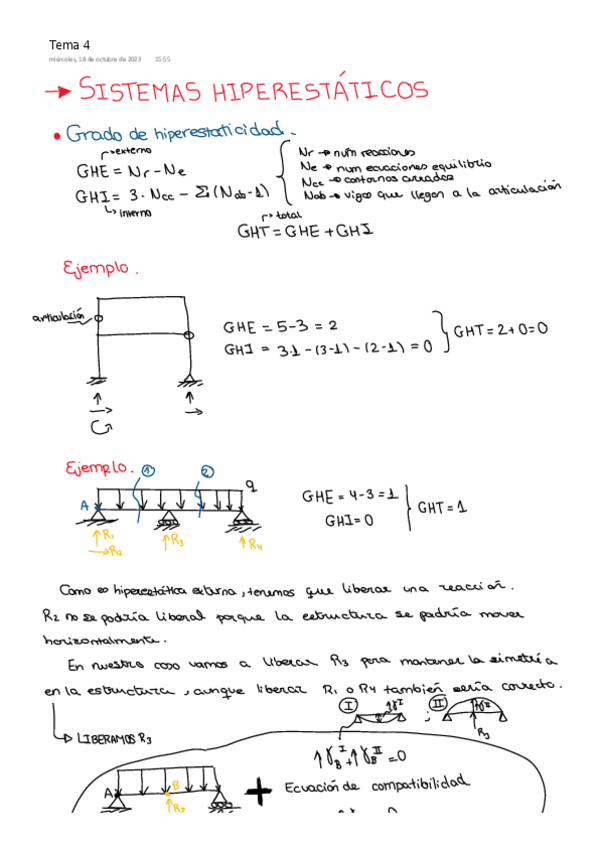 Tema 4
miércoles, 18 de octubre de 2023 15:55
→ SISTEMAS HIPERESTÁTICOS
• Grado de hiperestaticidad.
externo
GHE = Nr - Ne
GHI = 3·Ncc - Σ(Nab-1)
interno
Nr → num reacciones
Ne → num ecuaciones equilibrio
Ncc → contornos cerrados
Nab → vigas que llegan a la articulación
total
GHT = GHE + GHI
Ejemplo.
articulación
GHE = 5-3 = 2
GHI = 3·1 - (3-1) - (2-1) = 0
GHT = 2+0=0
Ejemplo. 1 2
q
A
R1
R2
R3
R4
GHE = 4-3 = 1
GHI = 0
GHT = 1
Como es hiperestática externa, tenemos que liberar una reacción.
R2 no se podría liberal porque la estructura se podría mover
horizontalmente.
En nuestro caso vamos a liberar R3 para mantener la simetría
en la estructura, aunque liberar R1 o R4 también sería correcto.
I ; II
R3
LIBERAMOS R3
↑γB^I + ↑γB^II = 0
A B
+ Ecuación de compatibilidad